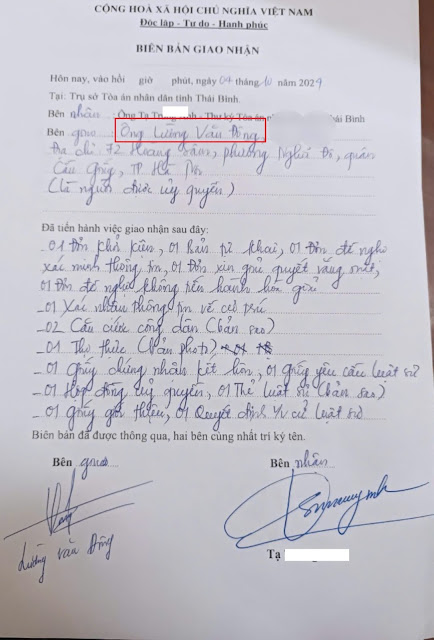 CỘNG HOÀ XÃ HỘI CHỦ NGHĨA VIỆT NAM
Độc lập - Tự do - Hạnh phúc
BIÊN BẢN GIAO NHẬN
Hôm nay, vào hồi giờ phút, ngày 04 tháng 10 năm 2024
Tại: Trụ sở Tòa án nhân dân tỉnh Thái Bình.
Bên nhận : Ông Tạ - Thư ký Tòa án Thái Bình
Bên giao : Ông Lường Văn Đông
Địa chỉ: 72 Hoàng Sâm, phường Nghĩa Đô, quận
Cầu Giấy, TP Hà Nội
(Là người được ủy quyền)
Đã tiến hành việc giao nhận sau đây:
- 01 Đơn khởi kiện, 01 Bản tự khai, 01 Đơn đề nghị
xác minh thông tin, 01 Đơn xin giải quyết vắng mặt,
01 Đơn đề nghị không tiến hành hòa giải
- 01 Xác nhận thông tin về cư trú
- 02 Căn cước công dân (bản sao)
- 01 Thị thực (bản photo)
- 01 Giấy chứng nhận kết hôn, 01 giấy yêu cầu luật sư
- 01 Hợp đồng uỷ quyền, 01 Thẻ luật sư (bản sao)
- 01 giấy giới thiệu, 01 Quyết định v/v cử luật sư
Biên bản đã được thông qua, hai bên cùng nhất trí ký tên.
Bên giao
Bên nhận
Lường Văn Đông
Tạ